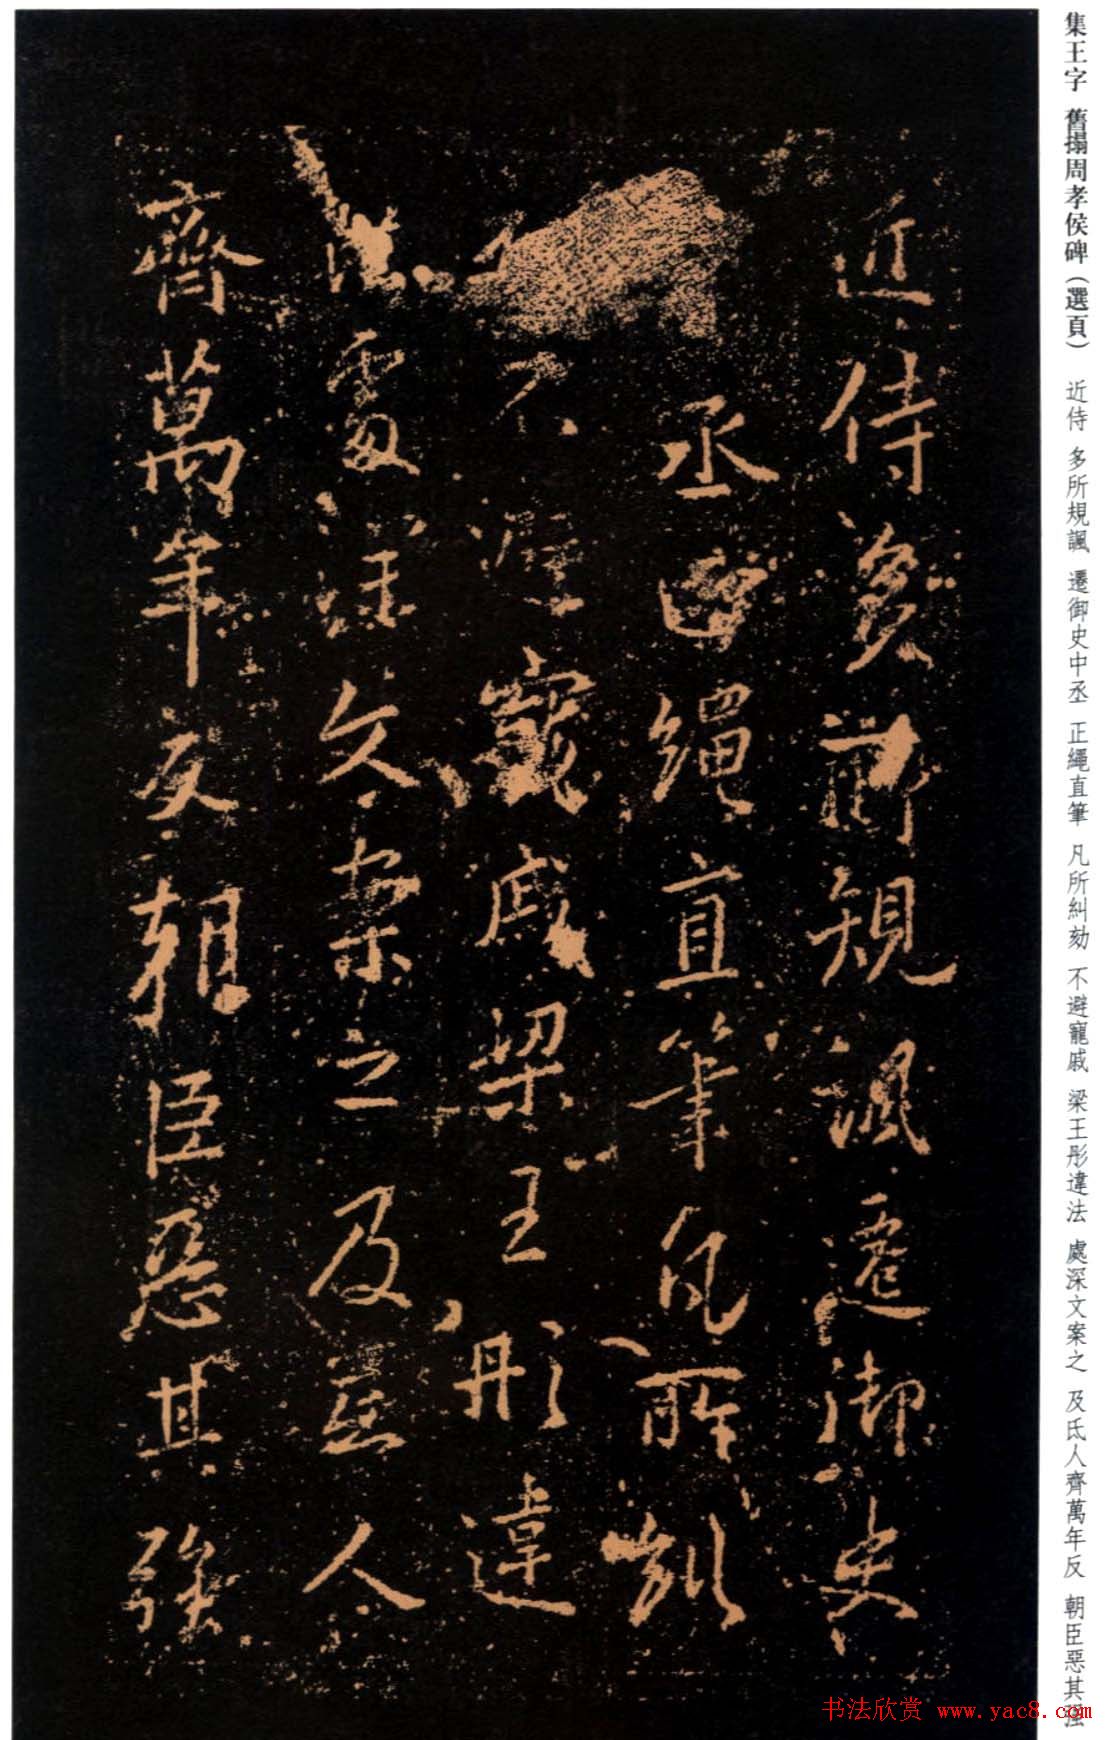 集王字 舊搨周孝侯碑（選頁） 近侍 多所規諷 遷御史中丞 正繩直筆 凡所糾劾 不避寵戚 梁王彤違法 處深文案之 及氏人齊萬年反 朝臣惡其强
近侍多所規諷遷御史
丞正繩直筆凡所糾
不避寵戚梁王彤違
法處深文案之及氐人
齊萬年反朝臣惡其強
书法欣赏 www.yac8.com